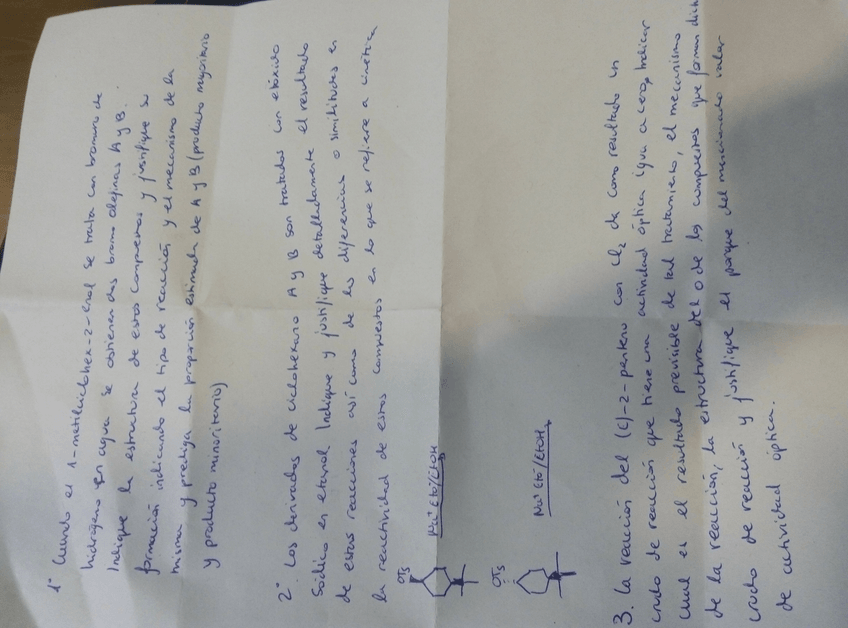 1º Cuando el 1-metilciclohex-2-enol se trata con bromuro de
hidrógeno en agua se obtienen dos bromo olefinas A y B.
Indique la estructura de estos compuestos y justifique su
formación indicando el tipo de reacción y el mecanismo de la
misma y prediga la proporción estimada de A y B (producto mayoritario
y producto minoritario)
2º Los derivados de ciclohexano A y B son tratados con etóxido
Sódico en etanol Indique y justifique detalladamente el resultado
de estas reacciones así como de las diferencias o similitudes en
la reactividad de estos compuestos en lo que se refiere a cinética
OTs
Na⁺ EtO⁻/EtOH
OTs
Na⁺ EtO⁻/EtOH
3. La reacción del (c)-2-penteno con Cl2 da como resultado un
crudo de reacción que tiene una actividad óptica igual a cero. Indicar
cual es el resultado previsible de tal tratamiento, el mecanismo
de la reacción, la estructura del o de los compuestos que forman dich
crudo de reacción y justifique el porque del mencionado valor
de actividad óptica.